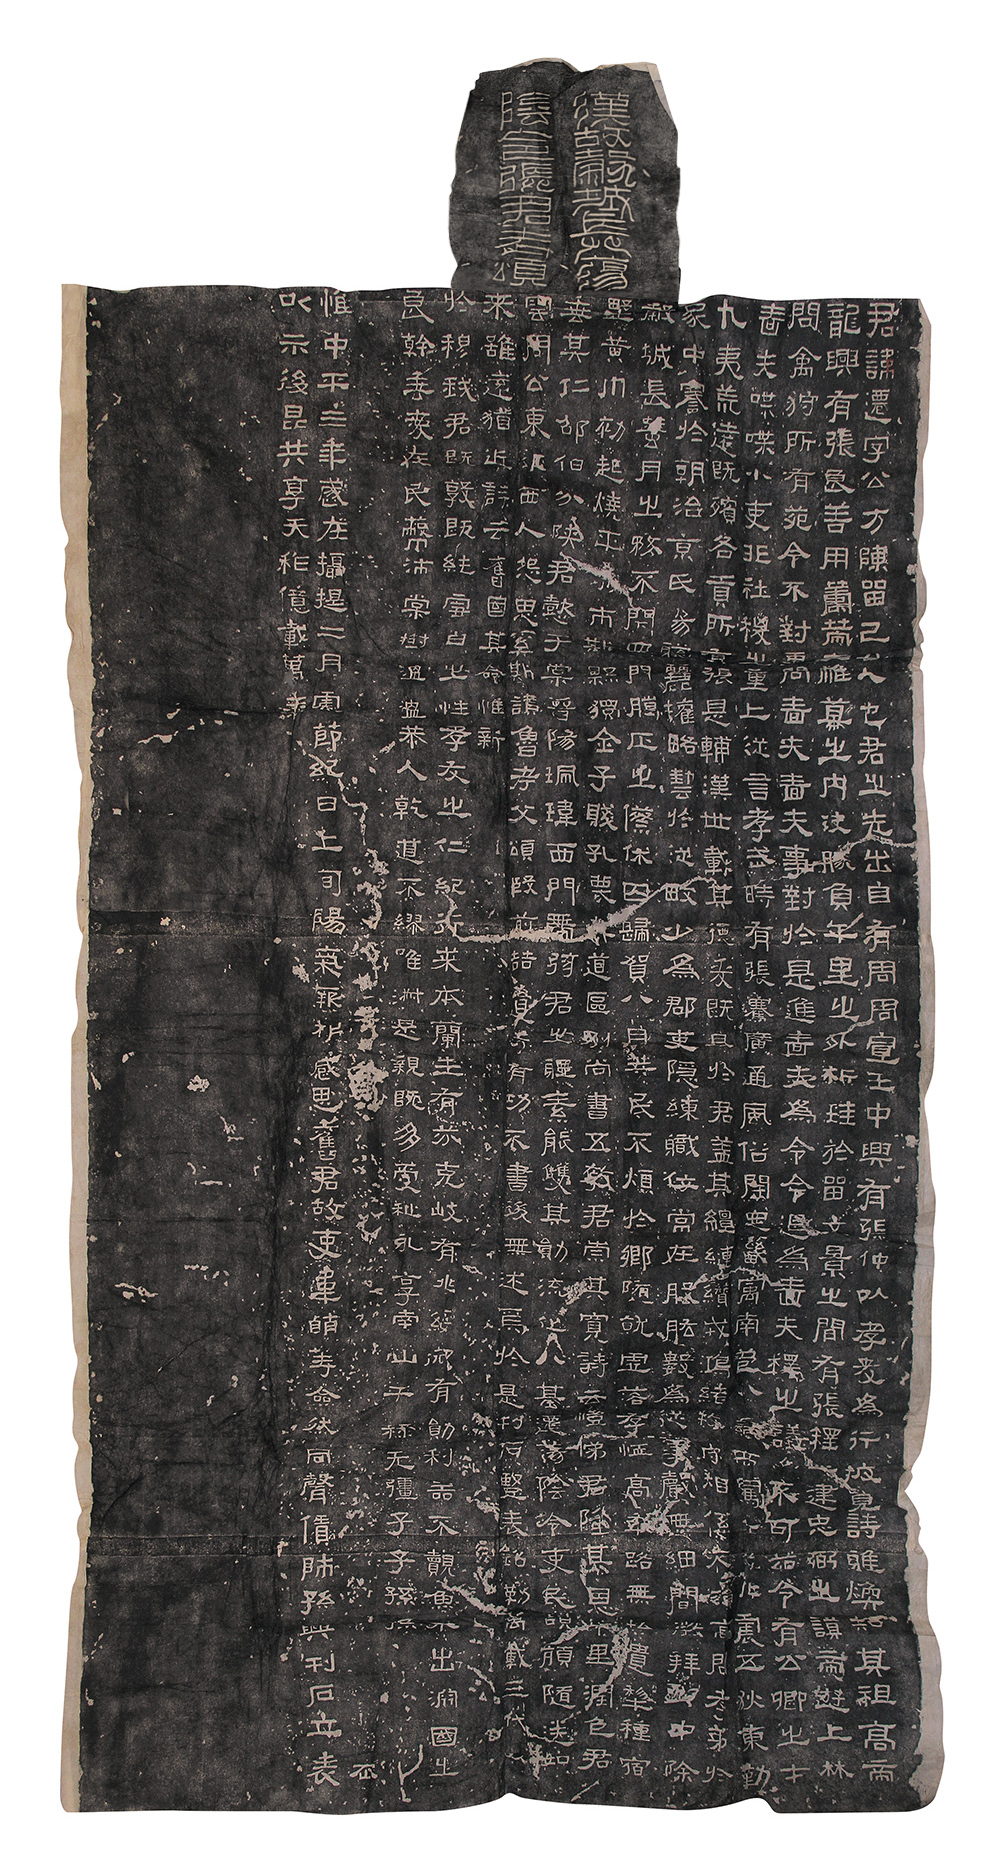 漢故穀城長蕩
陰令張君表頌
君諱遷字公方陳留己吾人也君之先出自有周周宣王中興有張仲以孝友為行披覽詩雅煥知其祖高帝
龍興有張良善用籌策在帷幕之內決勝負千里之外析珪於留文景之間有張釋之建忠弼之謨帝遊上林
問禽狩所有苑令不對更問嗇夫嗇夫事對於是進嗇夫為令令退為嗇夫釋之議為不可苑令有公卿之才
嗇夫喋喋小吏非社稷之重上從言孝武時有張騫廣通風俗開定畿寓南苞八蠻西羈六戎北震五狄東勤
九夷荒遠既殯各貢所有張是輔漢世載其德爰既且於君蓋其繵縺纘戎鴻緒牧守相係不殞高問孝弟於
家中謇於朝治京氏易聰麗權略藝於從畋少為郡吏隱練職位常在股肱數為從事聲無細聞徵拜郎中除
穀城長蠶月之務不閉四門臘正之僚休囚歸賀八月算民不煩於鄉隨就虛落存恤高年路無拾遺犁種宿
野黃巾初起燒平城市斯縣獨全子賤孔蔑其道區別尚書五教君崇其寬詩云愷悌君隆其恩東里潤色君
垂其仁邵伯分陝君懿于棠晉陽珮瑋西門帶弦君之體素能雙其勛流化八基遷蕩陰令吏民頡頏隨送如
雲周公東征西人怨思奚斯讚魯考父頌殷前喆遺芳有功不書後無述焉於是刊石豎表銘勒萬載三代以
來雖遠猶近詩云舊國其命惟新
於穆我君既敦既純雪白之性孝友之仁紀行來本蘭生有芬克岐有兆綏御有勛利器不覿魚不出淵國之
良幹垂愛在民蔽沛棠樹溫溫恭人乾道不繆唯淑是親既多受祉永享南山干祿无疆子子孫孫
惟中平三年歲在攝提二月震節紀日上旬陽氣厥析感思舊君故吏韋萌等僉然同聲賃師孫興刊石立表
以示後昆共享天祚億載萬年